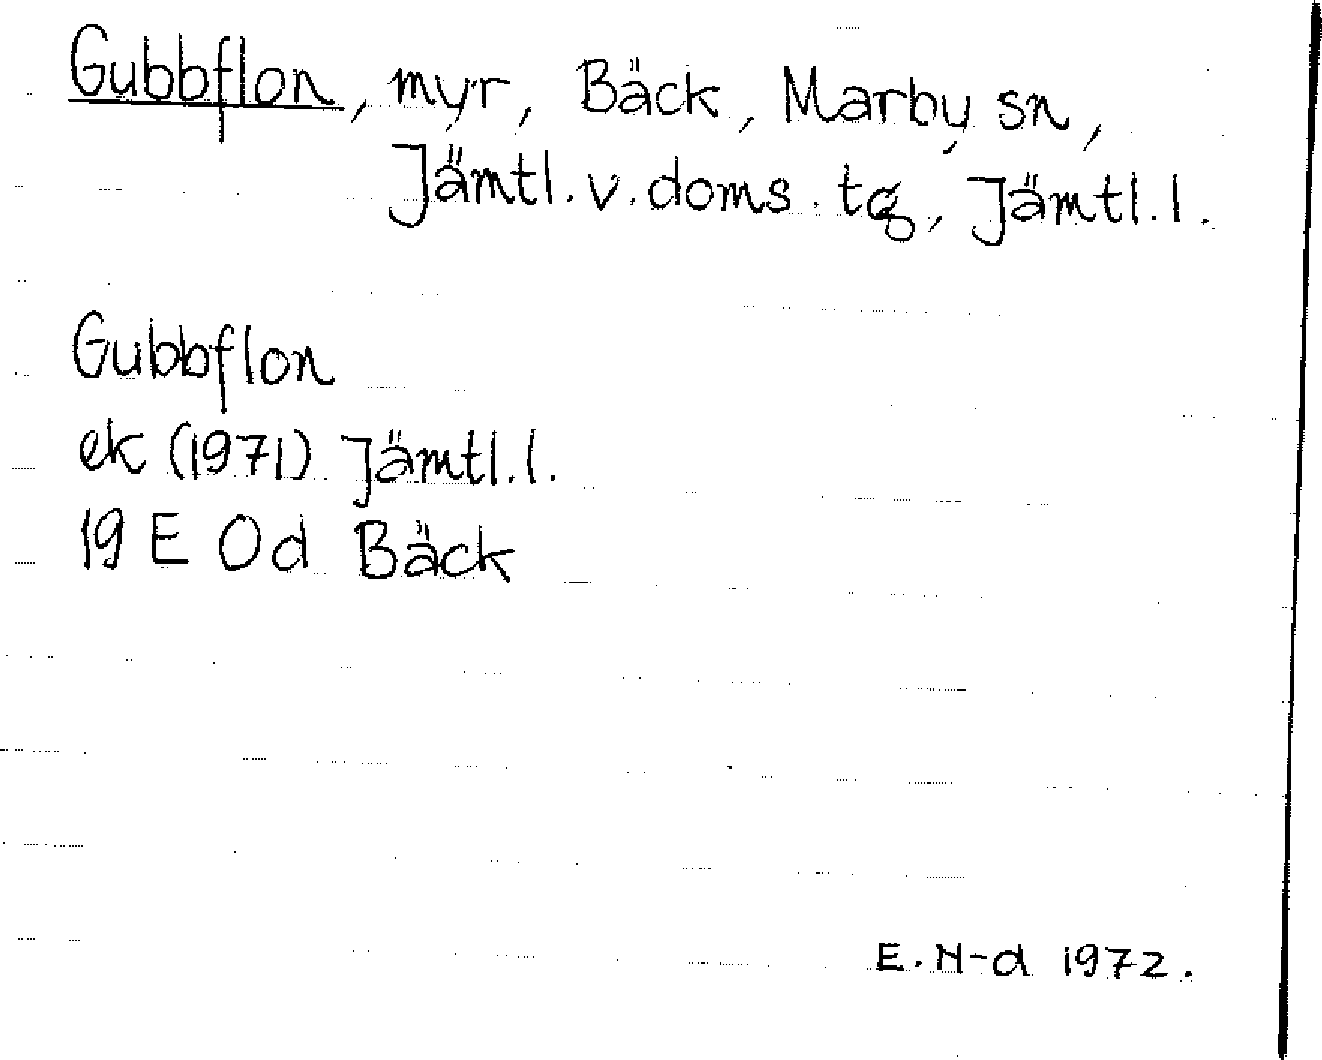 Gubbflon, myr, Bäck, Marby sn,
Jämtl. v. doms. tg, Jämtl. l.
Gubbflon
ek (1971) Jämtl. l.
19 E 0d Bäck
E. N-d 1972.